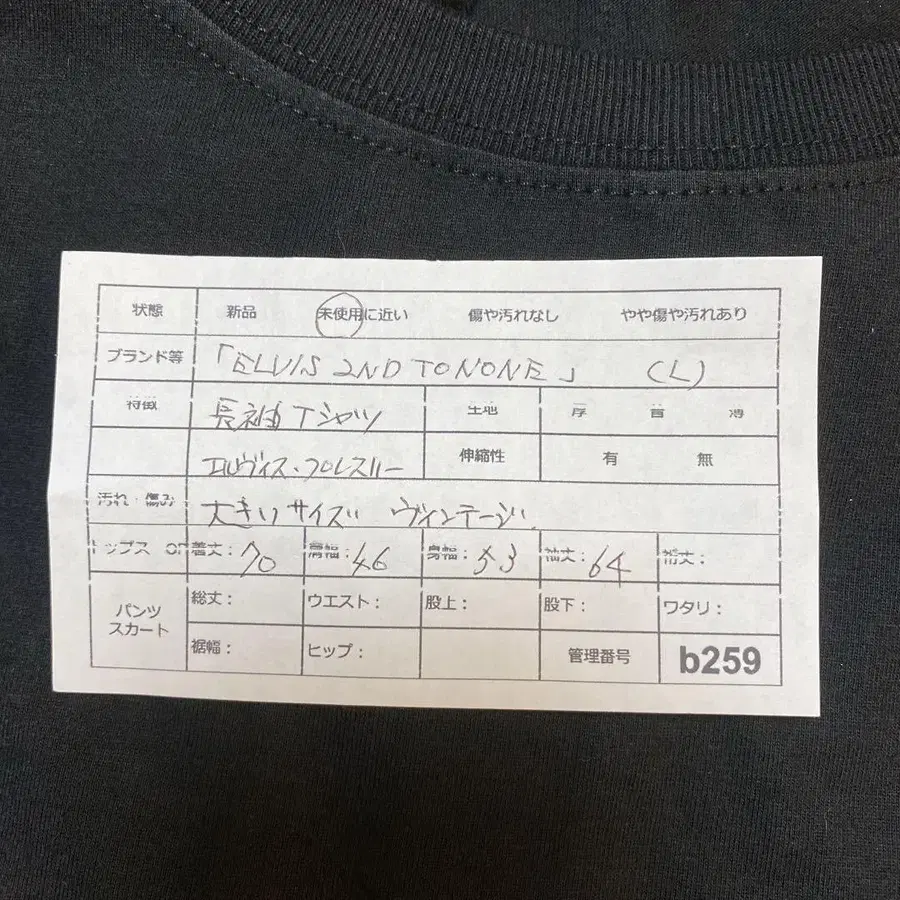 状態 新品 未使用に近い 傷や汚れなし やや傷や汚れあり
ブランド等 「ELVIS 2ND TO NONE」 (L)
特徴 長袖Tシャツ 生地 厚 普 薄
エルヴィス・プレスリー 伸縮性 有 無
汚れ・傷み 大きいサイズ ヴィンテージ
トップス 着丈: 70 肩幅: 46 身幅: 53 袖丈: 64 裄丈:
パンツ スカート 総丈: ウエスト: 股上: 股下: ワタリ:
裾幅: ヒップ: 管理番号 b259